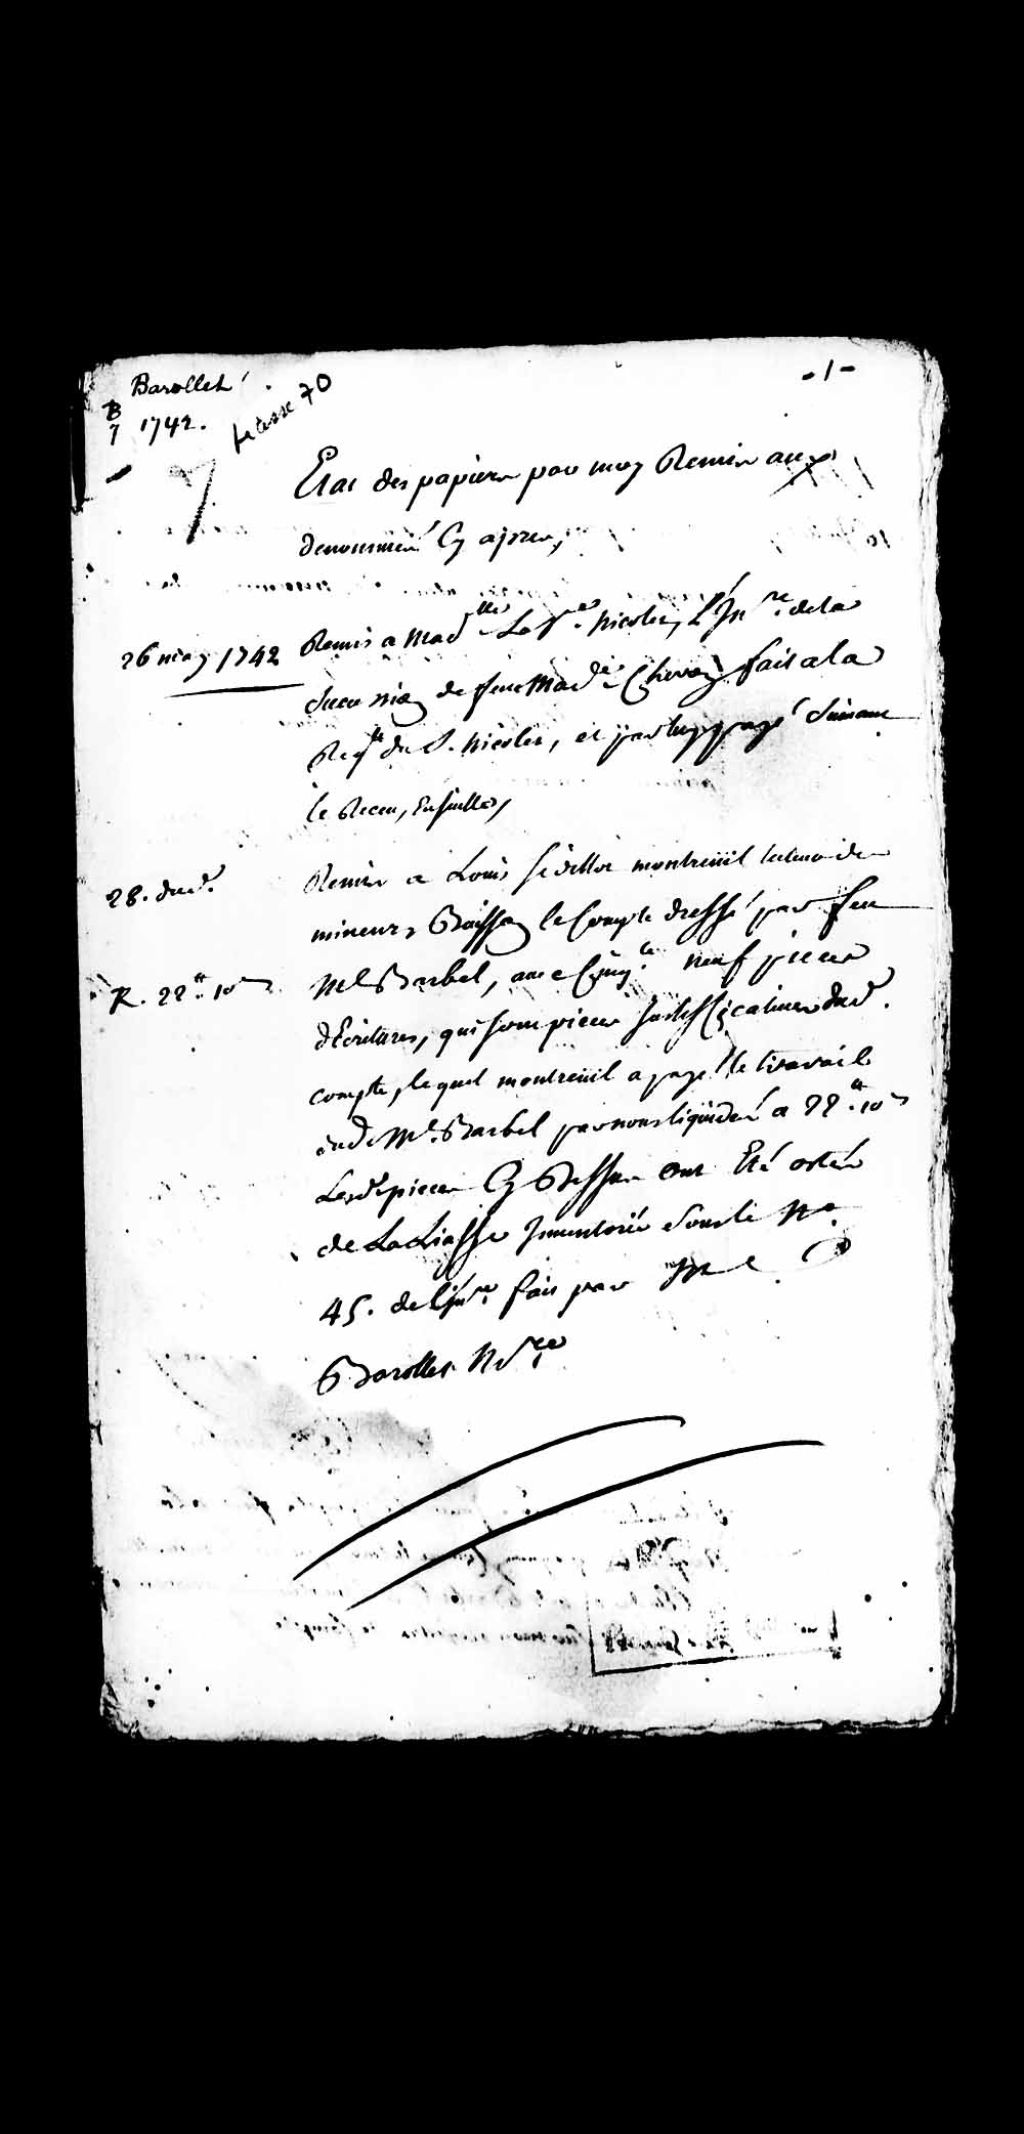 Barollet
-1-
B
7 1742.
Liasse 70
7
Etat des papiers par moy Remis aux
denommés Cy apres,
26 may 1742
Remis a Madlle La Ve. Nicolet, L'Inre. de la
succession de feue Made. fait a la
Reqte du S. Nicolet, et par luy payé suivant
le Receu, Ensuitte,
28. dud.
Remis a Louis Sédillot montreüil tuteur des
mineurs le Compte dressé par feu
R. 22tt. 10s
Me Barbel, avec Cinqte. neuf pieces
d'Ecritures, qui sont pieces Justifficatives dud.
compte, lequel montreüil a payé le travail
dud. Me. Barbel par nous liquidé a 22tt. 10s
Lesd. pieces Cy Dessus ont Eté ostés
de La Liasse Inventorié Sous le No.
45. de l'Inre. fait par Me
Barollet Nore